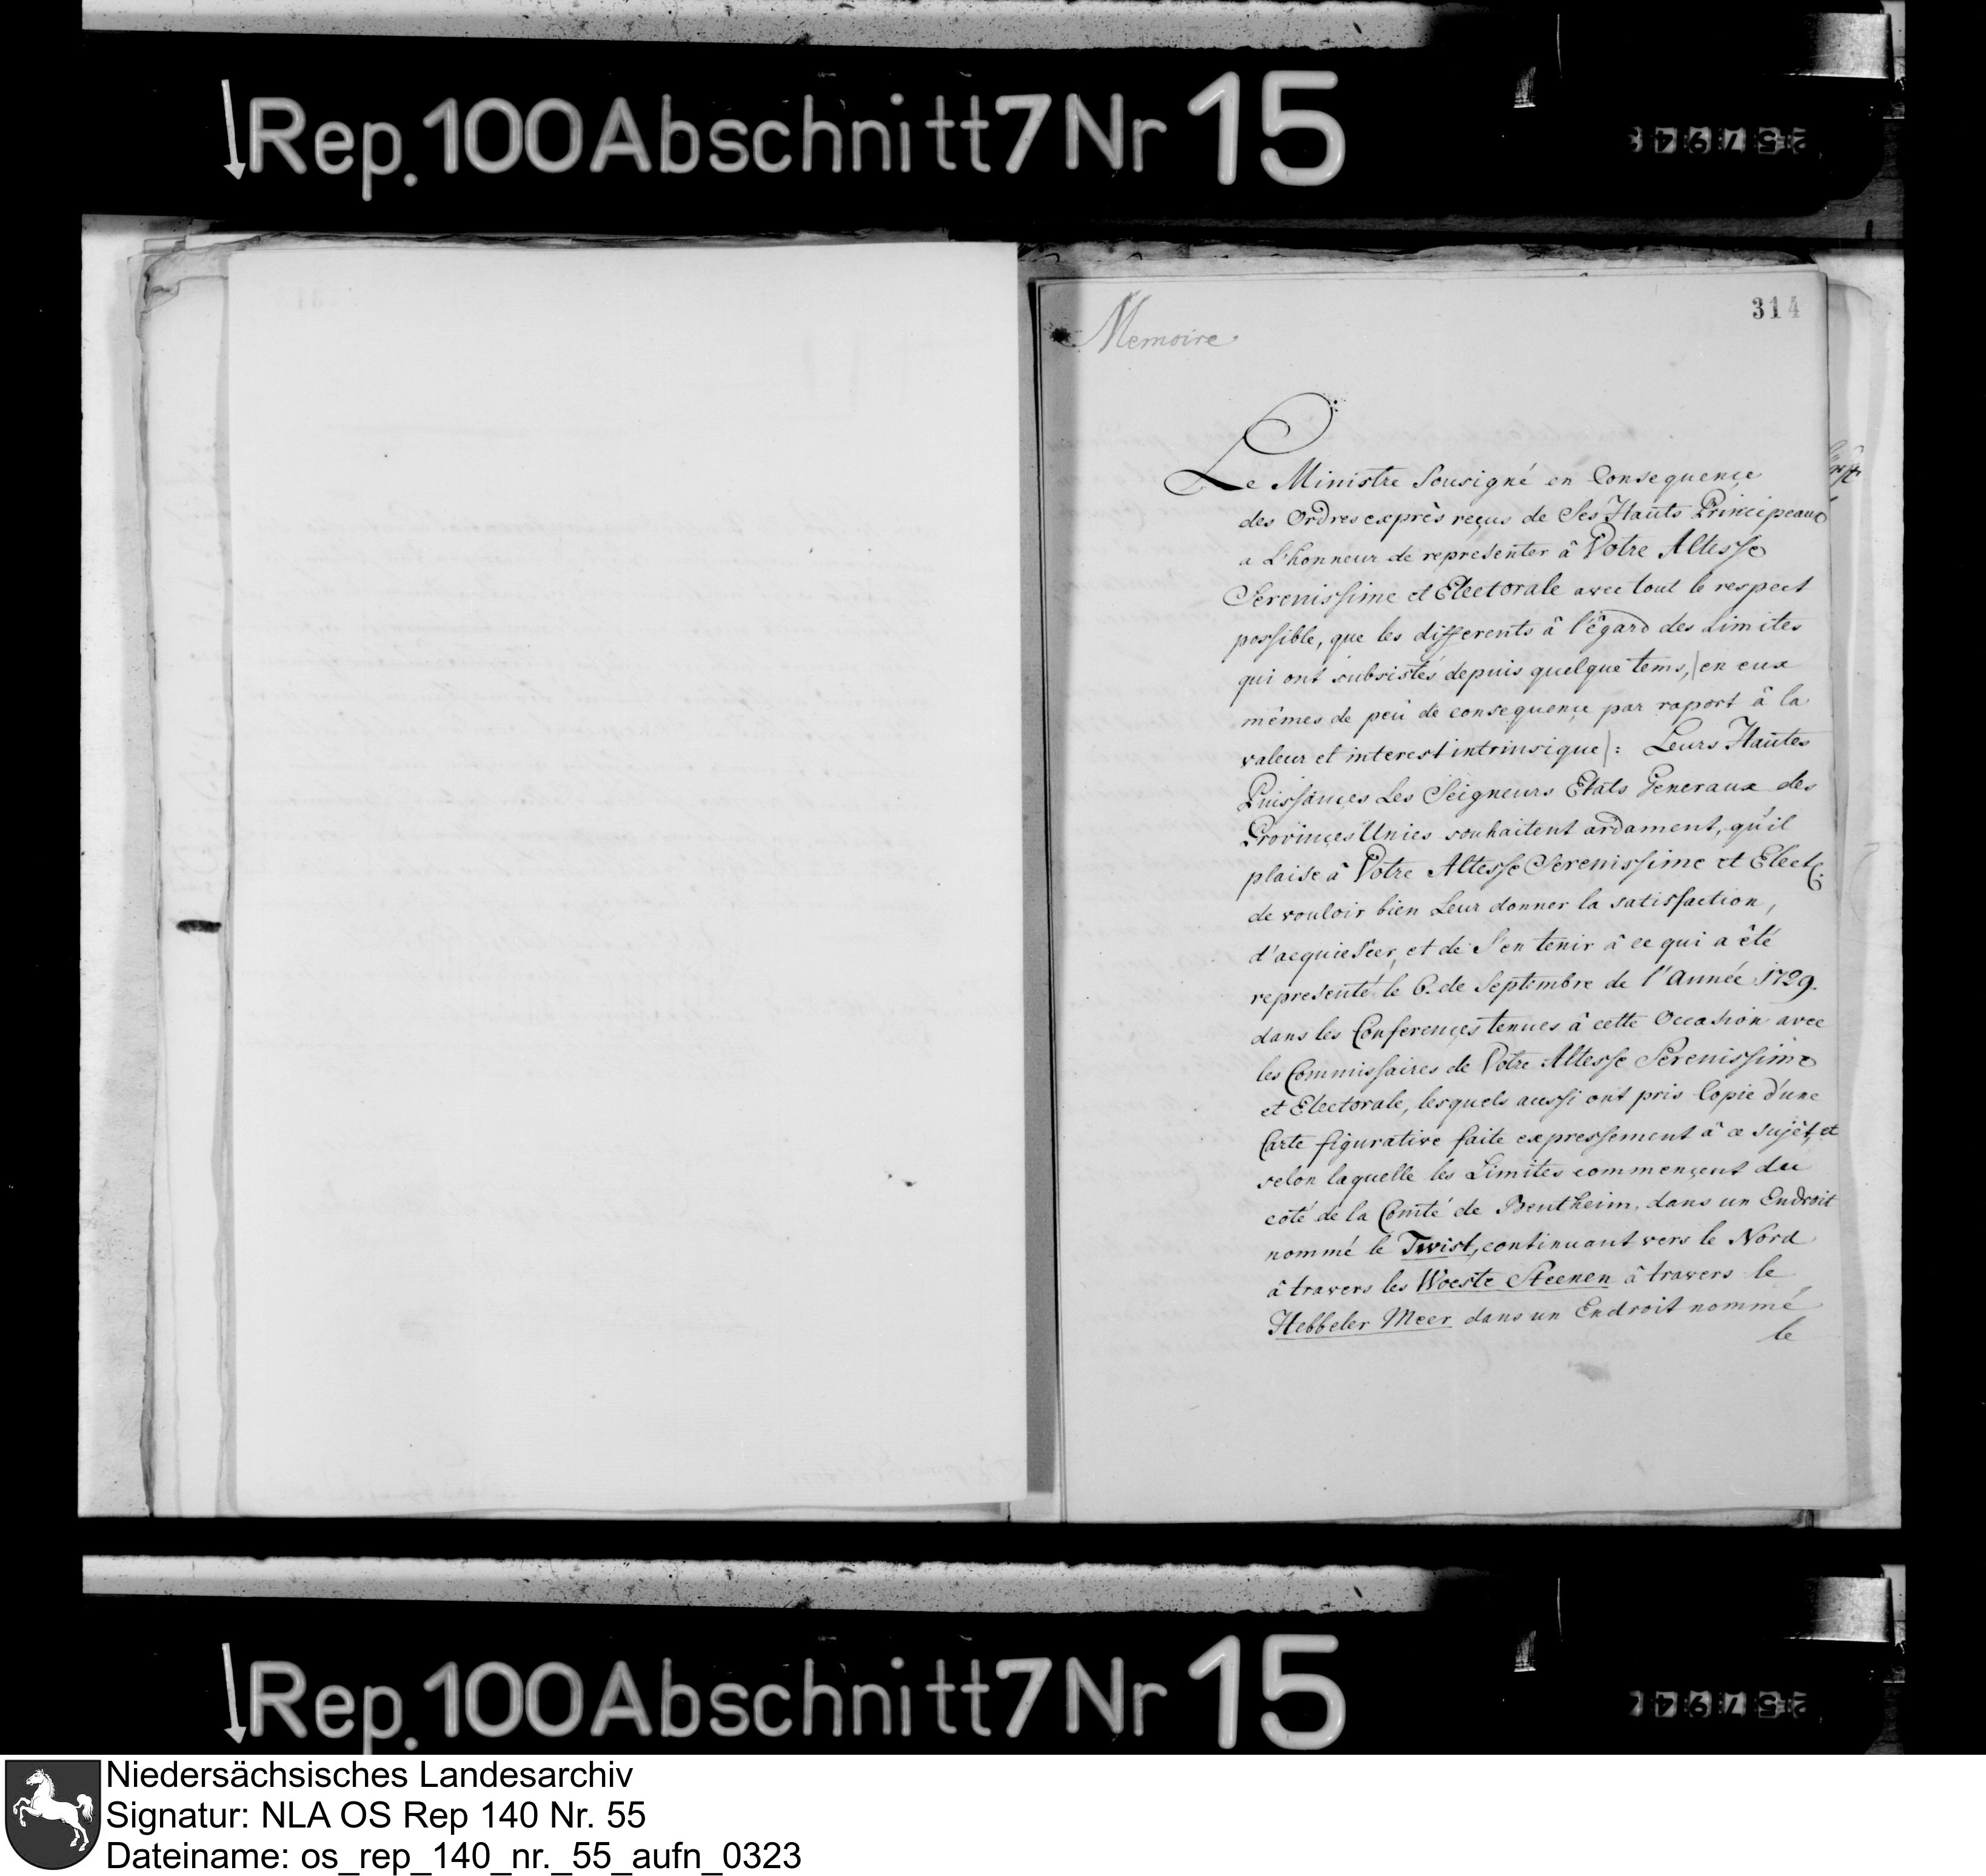 Rep. 100 Abschnitt 7 Nr 15
314
Memoire
Le Ministre Sousigné en Consequençe
des Ordres exprès reçus de Ses Hauts Principeaux
a L'honneur de representer â Votre Altesse
Serenissime et Electorale avec tout le respect
possible, que les differents â l'êgard des Limites
qui ont subsistés depuis quelque tems, |en eux
mêmes de peû de consequençe par raport â la
valeur et interest intrinsique|: Leurs Hautes
Puissançes Les Seigneurs Etats Generaux des
Provinçes Unies souhaitent ardament, qu'il
plaise â Votre Altesse Serenissime et Elect:
de vouloir bien Leur donner la satisfaction,
d'acquiesçer, et de S'en tenir â ce qui a êté
representé le 6. de Septembre de l'Année 1729.
dans les Conferençes tenues â cette Occasion avec
les Commissaires de Votre Altesse Serenissime
et Electorale, lesquels aussi ont pris Copie d'une
Carte figurative faite expressement â ce sujêt, et
selon laquelle les Limites commençent du
coté de la Comté de Bentheim, dans un Endroit
nommé le Twist, continuant vers le Nord
â travers les Woeste Steenen â travers le
Hebbeler Meer dans un Endroit nommé
le
Rep. 100 Abschnitt 7 Nr 15
Niedersächsisches Landesarchiv
Signatur: NLA OS Rep 140 Nr. 55
Dateiname: os_rep_140_nr._55_aufn_0323